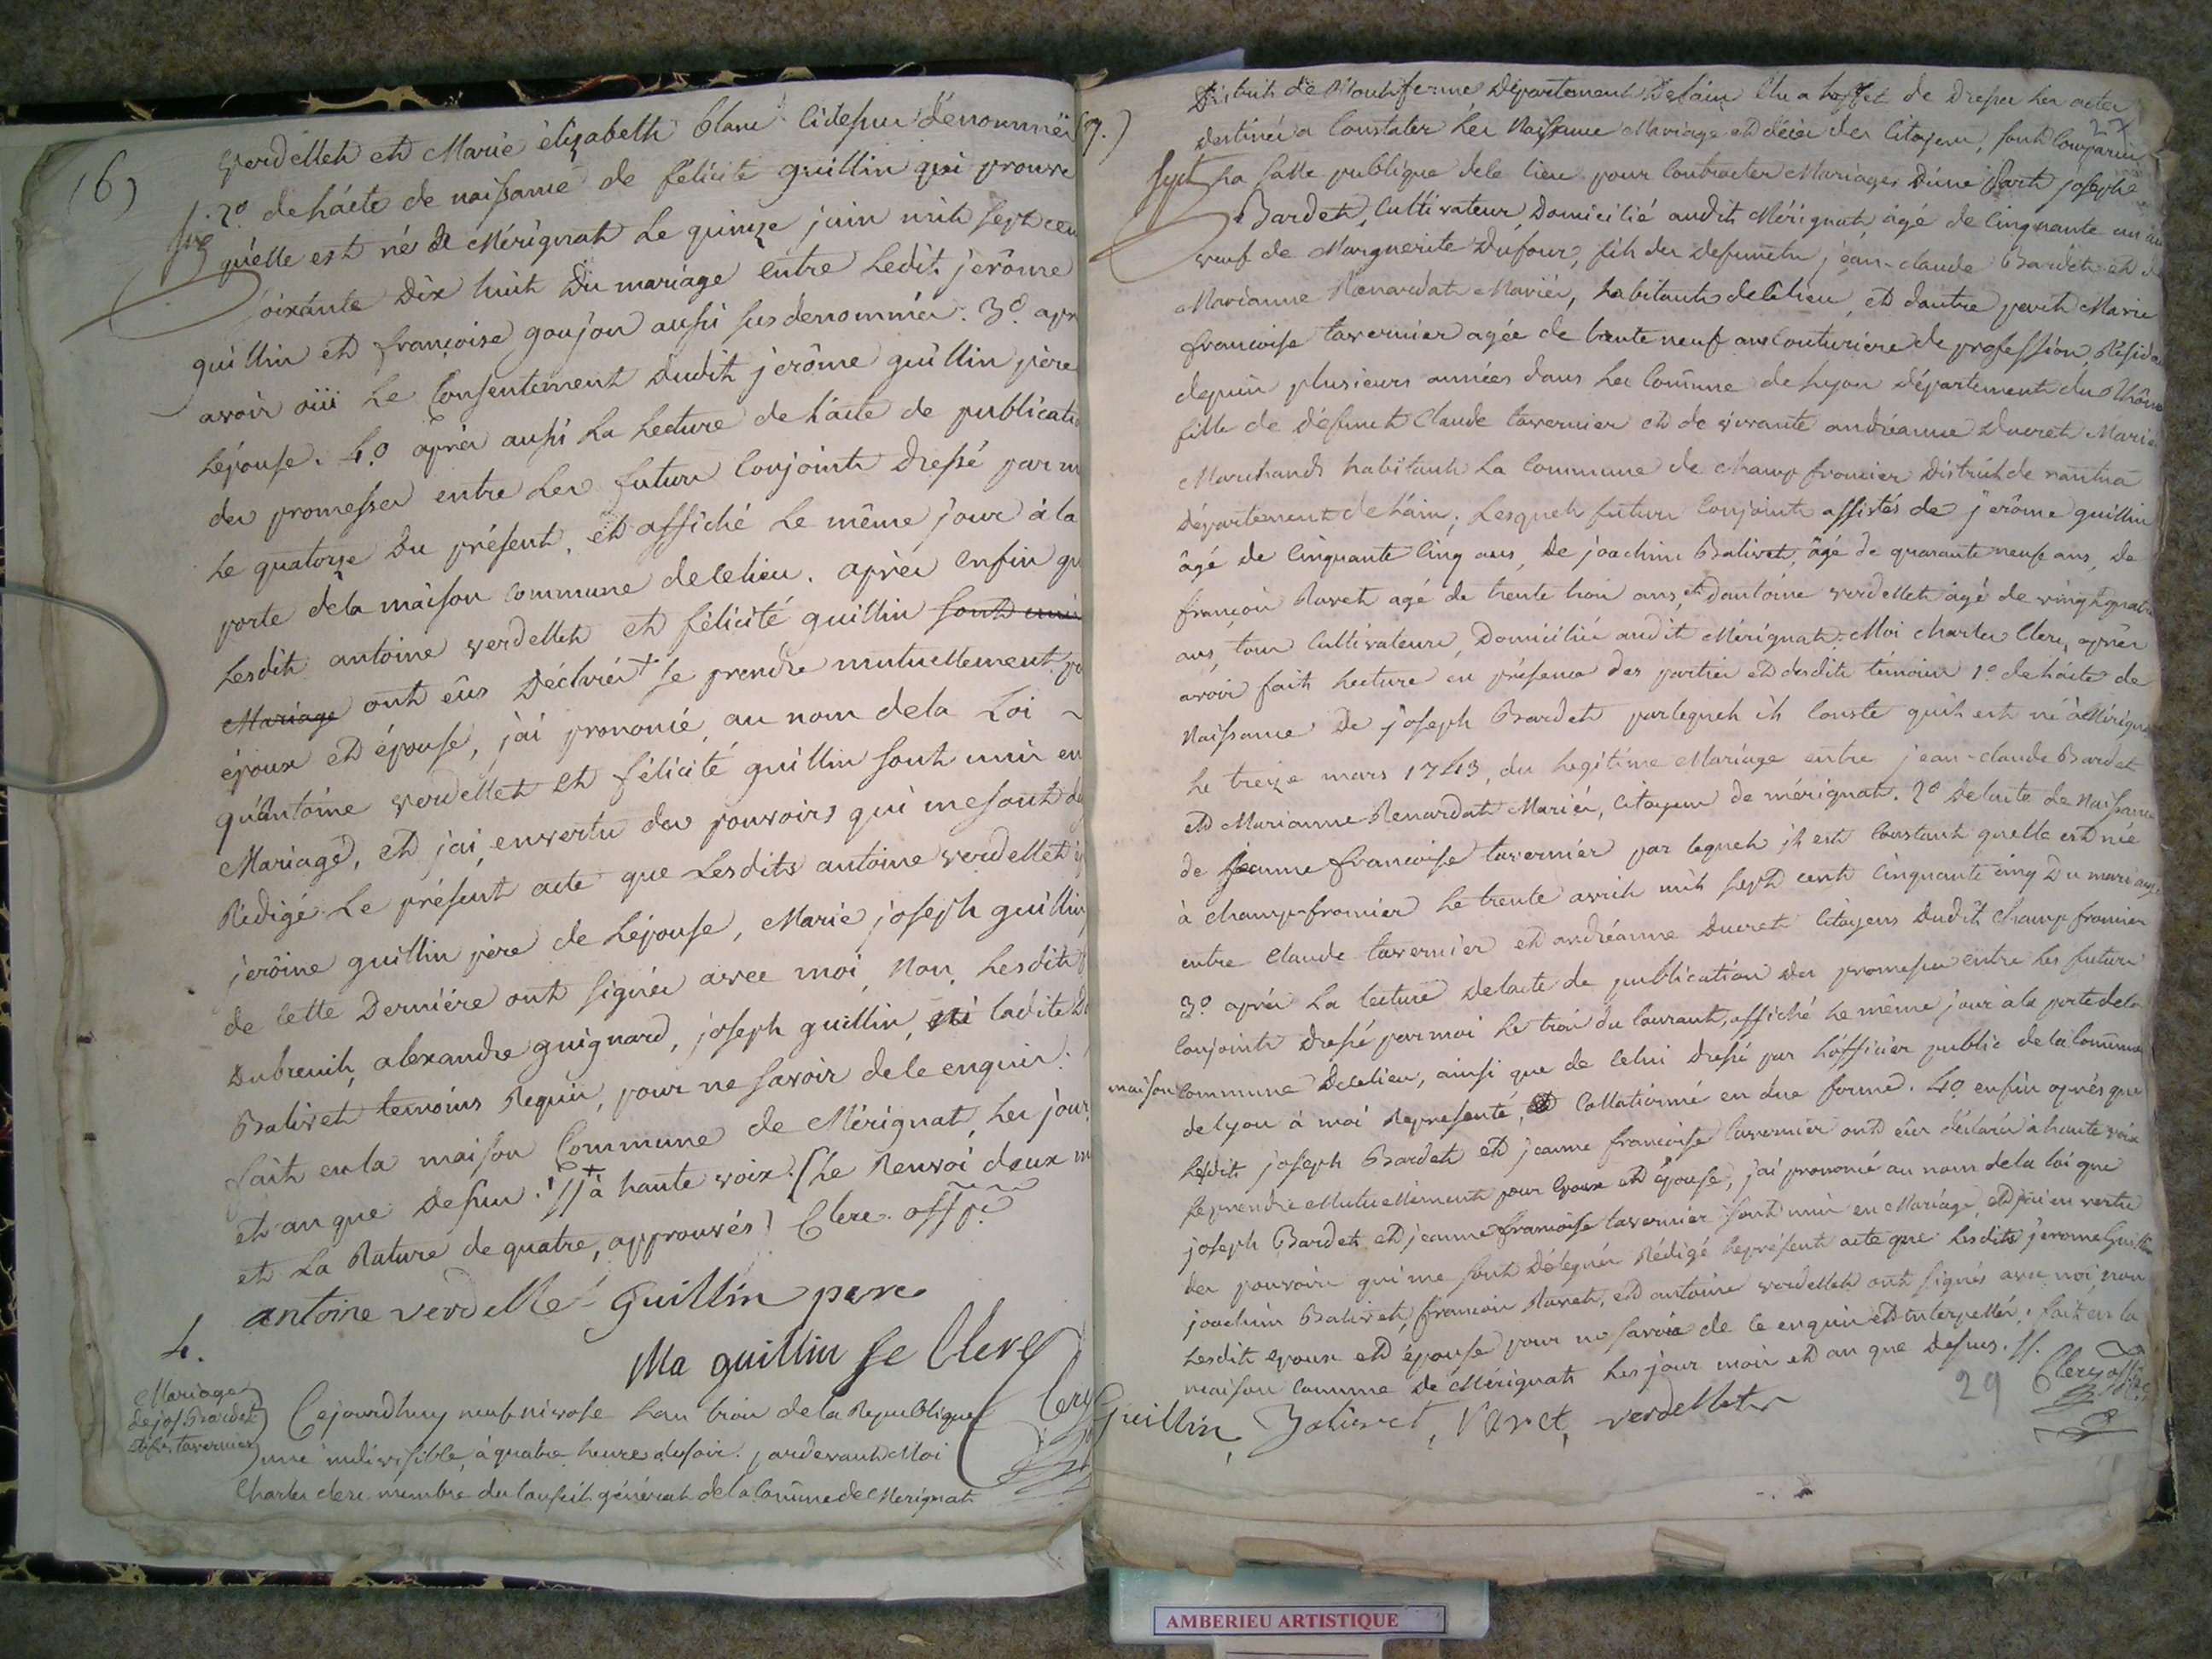 (6)
verdellet et Marie élizabeth Clanc cidessus dénommés
six
2º. de l'acte de naissance de félicité guillin qui prouve
qu'elle est né à Mérignat le quinze juin mil sept cen
soixante Dix huit Du mariage entre ledit jerôme
guillin et françoise goujon aussi susdenommés. 3º. apr
avoir oüi le Consentement dudit jerôme guillin père
l'épouse. 4.º après aussi la lecture de l'acte de publicati
des promesses entre les futurs Conjoints Dressé par m
le quatorze Du présent, et affiché le même jour à la
porte dela maison commune delelieu. après enfin qu
lesdits antoine verdellet et félicité guillin sont unis
Mariage ont êus Déclarés + se prendre mutuellement po
époux et épouse, j'ai prononcé, au nom dela Loi
qu'Antoine verdellet et félicité guillin sont unis en
Mariage, et j'ai, envertu des pouvoirs qui mesont de
Rédigé Le présent acte que Lesdits antoine verdellet
jerôme guillin père de Lépouse, Marie joseph guillin
de cette Dernière ont signés avec moi, Non Lesdits
Dubreuil, alexandre guignard, joseph guillin, ni ladite
Balivet temoins Requis, pour ne savoir dele enquis.
fait enla maison Commune de Mérignat, les jour
et an que Dessus. // + à haute voix. (Le Renvoi deux m
et La Rature de quatre, approuvés) Clerc offp.
antoine verdellet Guillin pere
Ma guillin fe Clerc
Clerc
4.
Mariage
de jos Bardet
et fse tavernier
Cejourdhuy neuf nivose Lan trois de la Republique
une indivisible, à quatre heures dusoir. pardevant Moi
Charles clerc membre du Conseil général dela Commune de Merignat
(7.)
District de Montferme Département Delain Elu a leffet de Dresser les actes
27
destinés a Constater les Naissance Mariage et décès des Citoyens, sont Comparus
sept
La salle publique dele lieu pour Contracter Mariages D'une Part joseph
Bardet, Cultivateur Domicilié audit Mérignat âgé de Cinquante un an
veuf de Marguerite Dufour, fils des defunts jéan-claude Bardet et de
Marianne Renardat Mariés, habitants delelieu, et dautre part Marie
francoise tavernier agée de trente neuf ans Couturiere de profession, Résida
depuis plusieurs années dans la Commune de Lyon Département du Rhône
fille de Défunct Claude tavernier et de vivante andréanne Ducret Mariés
Marchands habitants la Commune de champ fromier District de nantua
Département de L'ain; Lesquels futurs Conjoints assistés de jerôme guillin
âgé de Cinquante Cinq ans, De joachim Balivet, âgé de quarante neuf ans, De
françois Ravet agé de trente trois ans, et D'antoine verdellet âgé de vingt quatre
ans, tous Cultivateurs, Domiciliés audit Mérignat. Moi charles Clerc, après
avoir fait Lecture en présence des parties et desdits témoins 1º. de l'acte de
Naissance De joseph Bardet parlequel il Conste qu'il est né à Mérignat
le treize mars 1743, du Legitime Mariage entre jean-claude Bardet
et Marianne Renardat Mariés, Citoyens de mérignat. 2º Delacte de Naissance
de jeanne francoise tavernier par lequel il est Constant qu'elle est née
à champ-fromier le trente avril mil sept cent Cinquante cinq Du mariage
entre Claude tavernier et andréanne Ducret Citoyens Dudit Champ fromier
3º. après La lecture Delacte de publication Des promesses entre les futurs
Conjoints Dressé par moi Le trois du Courant, affiché le même jour à la porte dela
maison Commune Delelieu, ainsi que de Celui Dressé par L'officier public dela Commune
de Lyon à moi Représenté, Collationné en due forme. 4.º enfin après que
Lesdit joseph Bardet et jeanne francoise tavernier ont êus déclarés à haute voix
se prendre Mutuellement pour Epoux et épouse, j'ai prononcé au nom dela loi que
joseph Bardet et jeanne francoise tavernier sont unis en Mariage, et j'ai en vertu
des pouvoirs qui me sont Délegués Rédigé Leprésent acte que Lesdits jerome Guillin
joachim Balivet, françois Ravet, et antoine verdellet ont signés avec moi, non
Lesdits epoux et épouse pour ne savoir de le enquis et interpellés; fait en la
maison Commune De Mérignat Les jour mois et an que Dessus. //.
29
Clerc off
Guillin, Balivet, Ravet, verdellet
AMBERIEU ARTISTIQUE